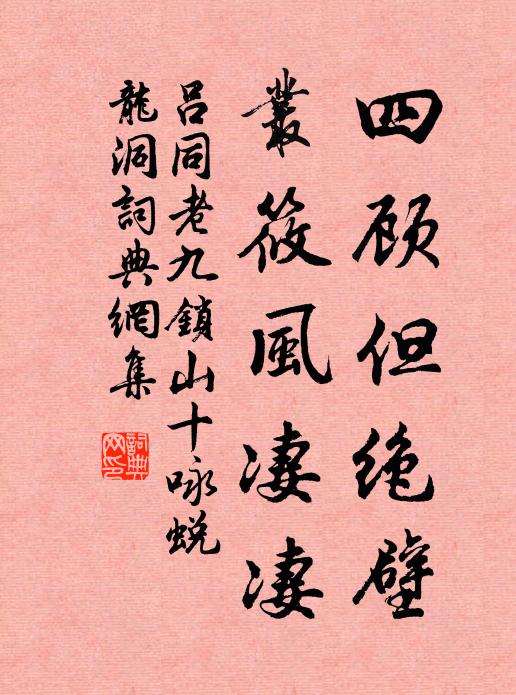 四顾但绝壁
叢筱風凄凄
吕同老九鎖山十咏蜕
龍洞詞典網集
詞典网印